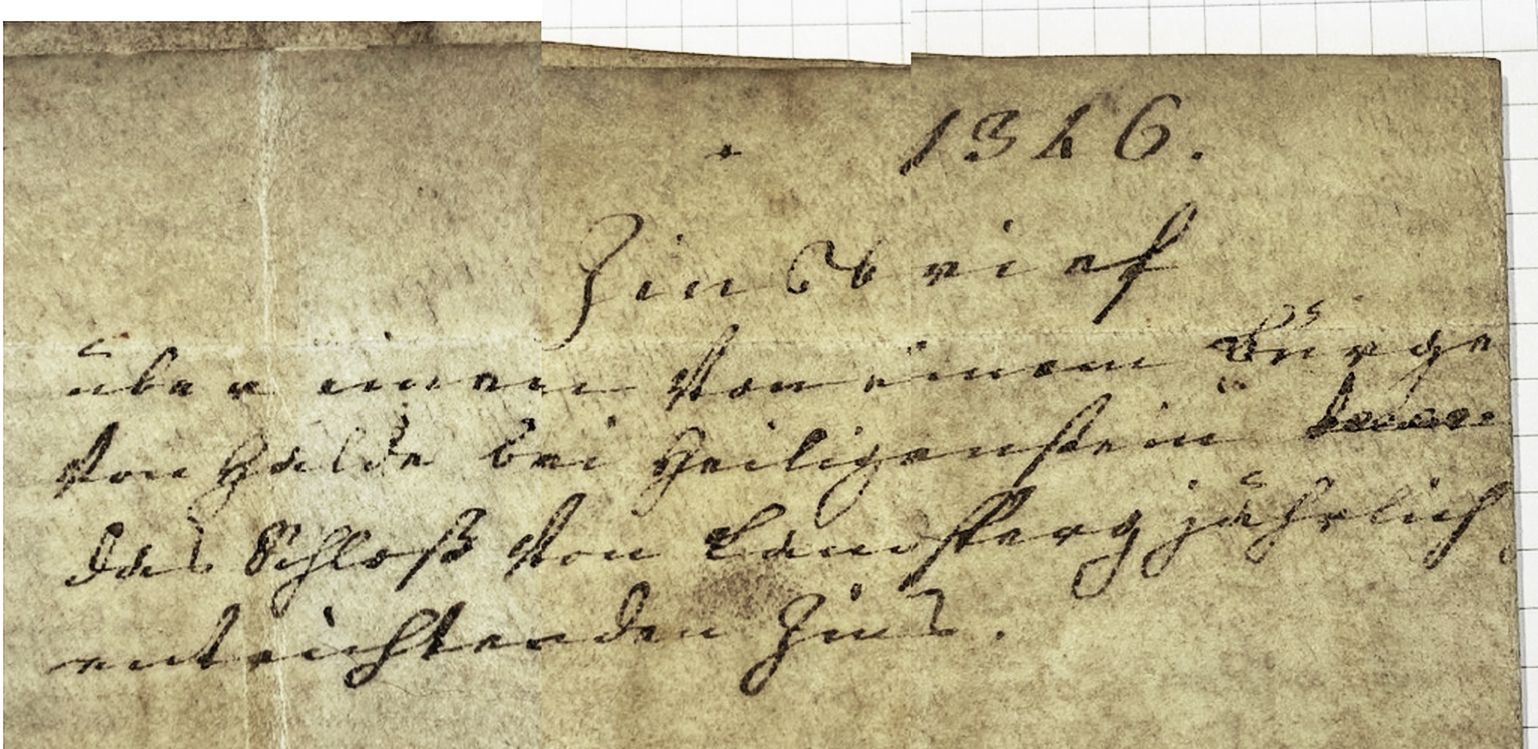 1346.
Zinsbrief
über einen von einem Bürge
von Halde bei Heiligenstein
das Schloß von Landsperg jährlich
entrichtenden Zins.